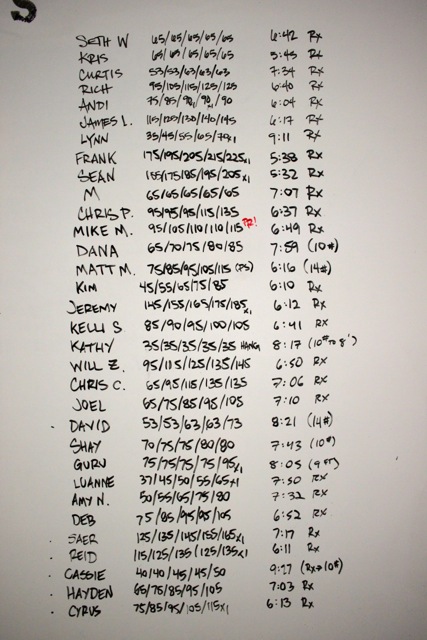 S
SETH W 65/65/65/65/65 6:42 Rx
KRIS 65/65/65/65/65 5:45 Rx
CURTIS 53/53/63/63/63 7:34 Rx
RICH 95/105/115/125/125 6:40 Rx
ANDI 75/85/90/90/90 6:04 Rx
JAMES L. 115/125/130/140/145 6:17 Rx
LYNN 35/45/55/65/70x1 9:11 Rx
FRANK 175/195/205/215/225x1 5:38 Rx
SEAN 155/175/185/195/205x1 5:32 Rx
M 65/65/65/65/65 7:07 Rx
CHRIS P. 95/95/95/115/135 6:37 Rx
MIKE M. 95/105/110/110/115 PR! 6:49 Rx
DANA 65/70/75/80/85 7:59 (10#)
MATT M. 75/85/95/105/115 (PS) 6:16 (14#)
KIM 45/55/65/75/85 6:10 Rx
JEREMY 145/155/165/175/185x1 6:12 Rx
KELLI S 85/90/95/100/105 6:41 Rx
KATHY 35/35/35/35/35 HANG 8:17 (10# TO 8')
WILL Z. 95/115/125/135/145 6:50 Rx
CHRIS C. 65/95/115/135/135 7:06 Rx
JOEL 65/75/85/95/105 7:10 Rx
DAVID 53/53/63/63/73 8:21 (14#)
SHAY 70/75/75/80/80 7:43 (10#)
GURU 75/75/75/75/95x1 8:05 (9 FT)
LUANNE 37/45/50/55/65x1 7:50 Rx
AMY N. 50/55/65/75/80 7:32 Rx
DEB 75/85/95/95/105 6:52 Rx
SAER 125/135/145/155/165x1 7:17 Rx
REID 115/125/135/125/135x1 6:11 Rx
CASSIE 40/40/45/45/50 9:17 (Rx→10#)
HAYDEN 65/75/85/95/105 7:03 Rx
CYRUS 75/85/95/105/115x1 6:13 Rx